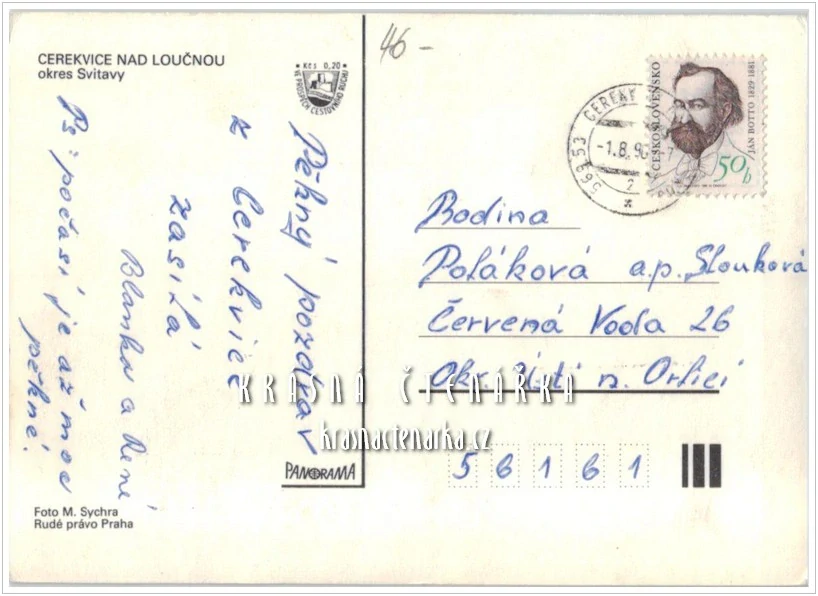 CEREKVICE NAD LOUČNOU
okres Svitavy
Kčs 0,20
VE PROSPĚCH CESTOVNÍHO RUCHU
46 –
569 53 CEREKV
-1.8.90-7
2
ČESKOSLOVENSKO
JAN BOTTO 1829 1881
50h
Pěkný pozdrav
z Cerekvice
zasílá
Blanka a René
Ps: počasí je až moc
pěkné.
Rodina
Poláková a.p. Slouková
Červená Voda 26
Okr. Ústí n. Orlicí
56161
KRÁSNÁ ČTENÁŘKA
krasnactenarka.cz
PANORAMA
Foto M. Sychra
Rudé právo Praha